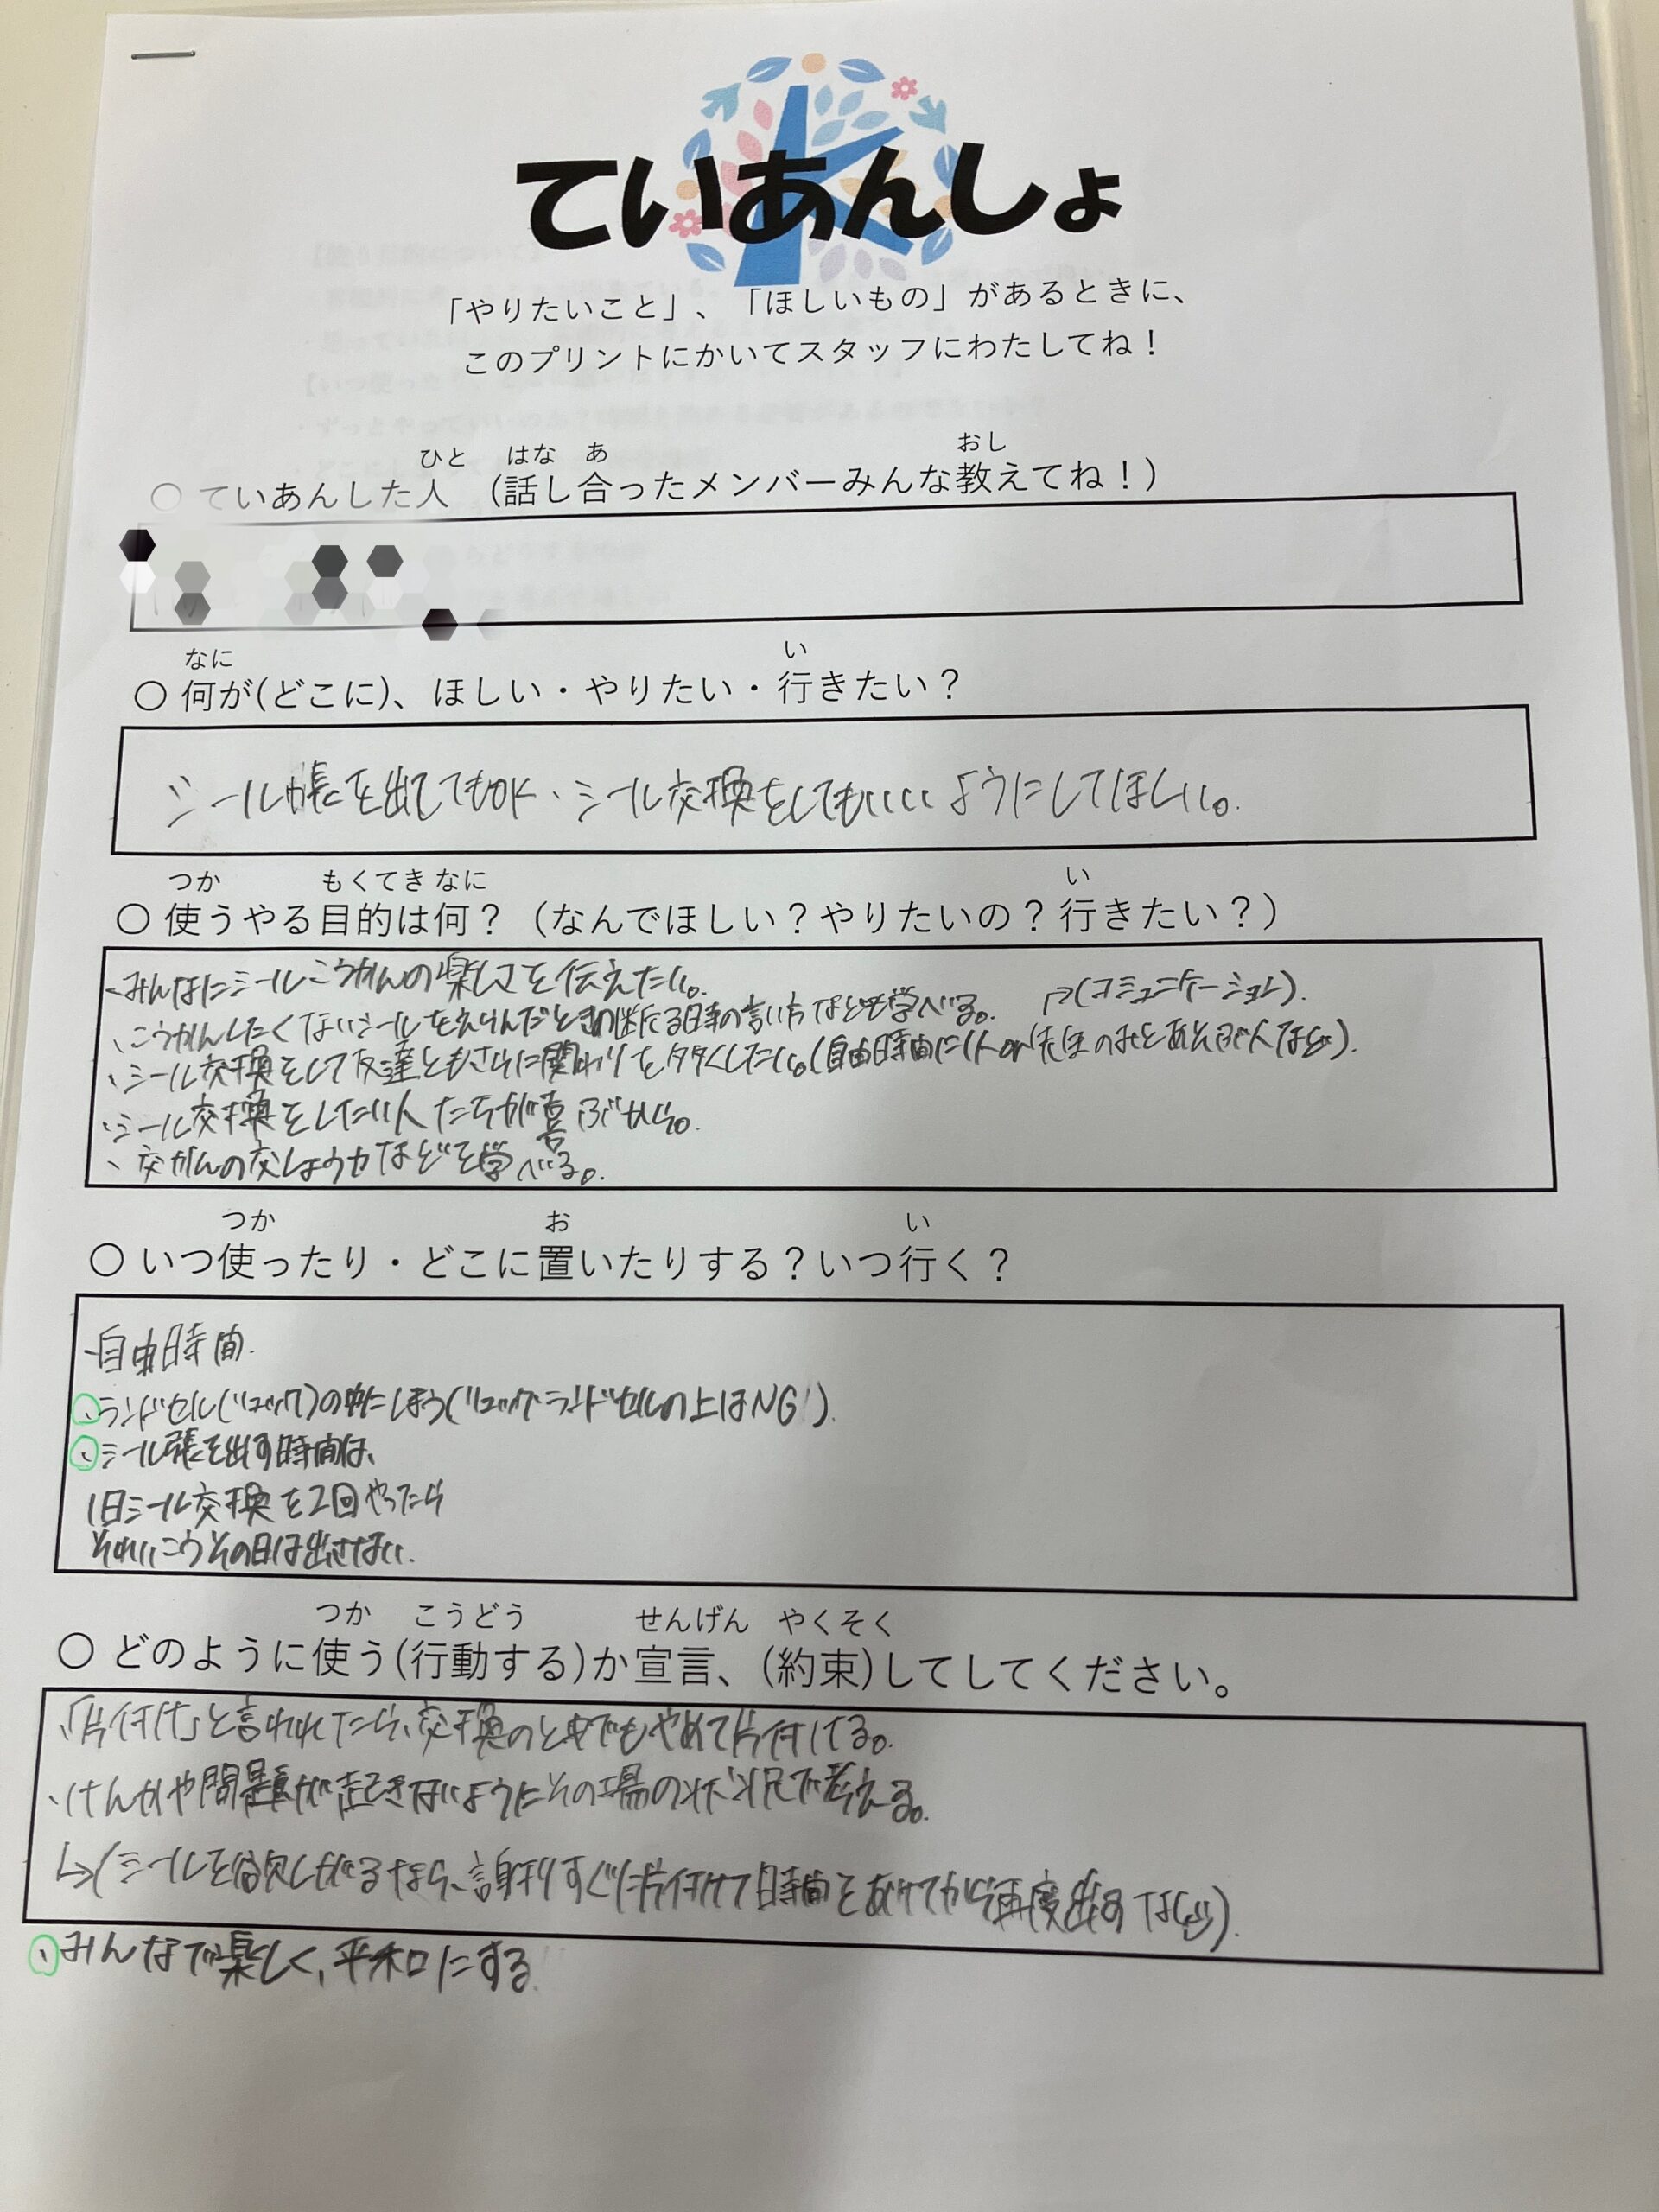 ていあんしょ
「やりたいこと」、「ほしいもの」があるときに、
このプリントにかいてスタッフにわたしてね！
ひと はな あ おし
○ ていあんした人 (話し合ったメンバーみんな教えてね！)
なに い
○ 何が(どこに)、ほしい・やりたい・行きたい？
シール帳を出してもOK、シール交換をしてもいいようにしてほしい。
つか もくてき なに い
○ 使うやる目的は何？ (なんでほしい？やりたいの？行きたい？)
・みんなにシールこうかんの楽しさを伝えたい。
→(コミュニケーション).
、こうかんしたくないシールをえらんだときの断る時の言い方なども学べる。
、シール交換をして友達ともさらに関わりを多くしたい。(自由時間に1人or先生のみとあそぶ人など).
、シール交換をしたい人たちが喜ぶから。
、交かんの交しょう力などを学べる。
つか お い
○ いつ使ったり・どこに置いたりする？いつ行く？
・自由時間.
、ランドセル(リュック)の中にしまう(リュック・ランドセルの上はNG!).
、シール張を出す時間は、
1日シール交換を2回やったら
それいこうその日は出さない.
つか こうどう せんげん やくそく
○ どのように使う(行動する)か宣言、(約束)してしてください。
、「片付け」と言われたら、交換のと中でもやめて片付ける。
、けんかや問題が起きないようにその場の状況で考える。
↳(シールを欲しがるなら、謝りすぐに片付けて時間をあけてから再度出すなど).
、みんなで楽しく、平和にする